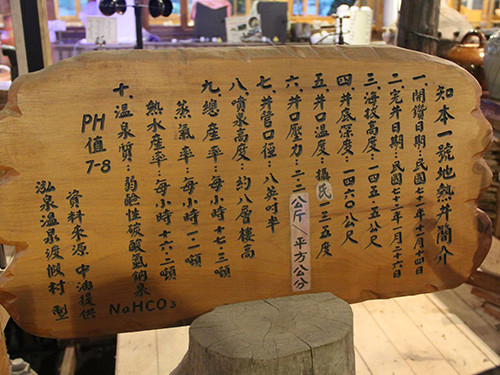 知本一號地熱井簡介
一、開鑽日期:民國七十年十月十四日
二、完井日期:民國七十一年一月二十六日
三、海拔高度:一四五·五公尺
四、井底深度:一四六〇公尺
五、井口溫度:攝氏一三五度
六、井口壓力:二·二公斤/平方公分
七、井管口徑:八英吋半
八、噴泉高度:約八層樓高
九、總產率:每小時十七·三噸
蒸氣率:每小時一·一噸
熱水產率:每小時十六·二噸
十、溫泉質:弱鹼性碳酸氫鈉泉
NaHCO3
PH值7-8
資料來源 中油提供
泓泉溫泉渡假村